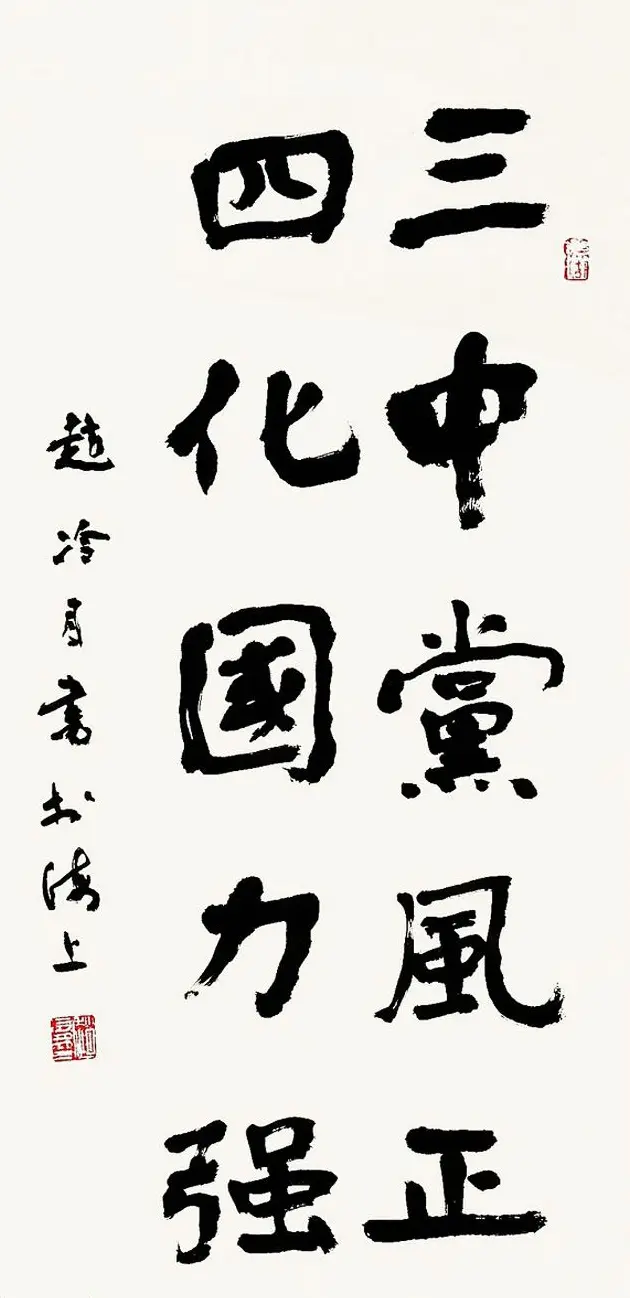 三中黨風正
四化國力强
趙冷月書於海上